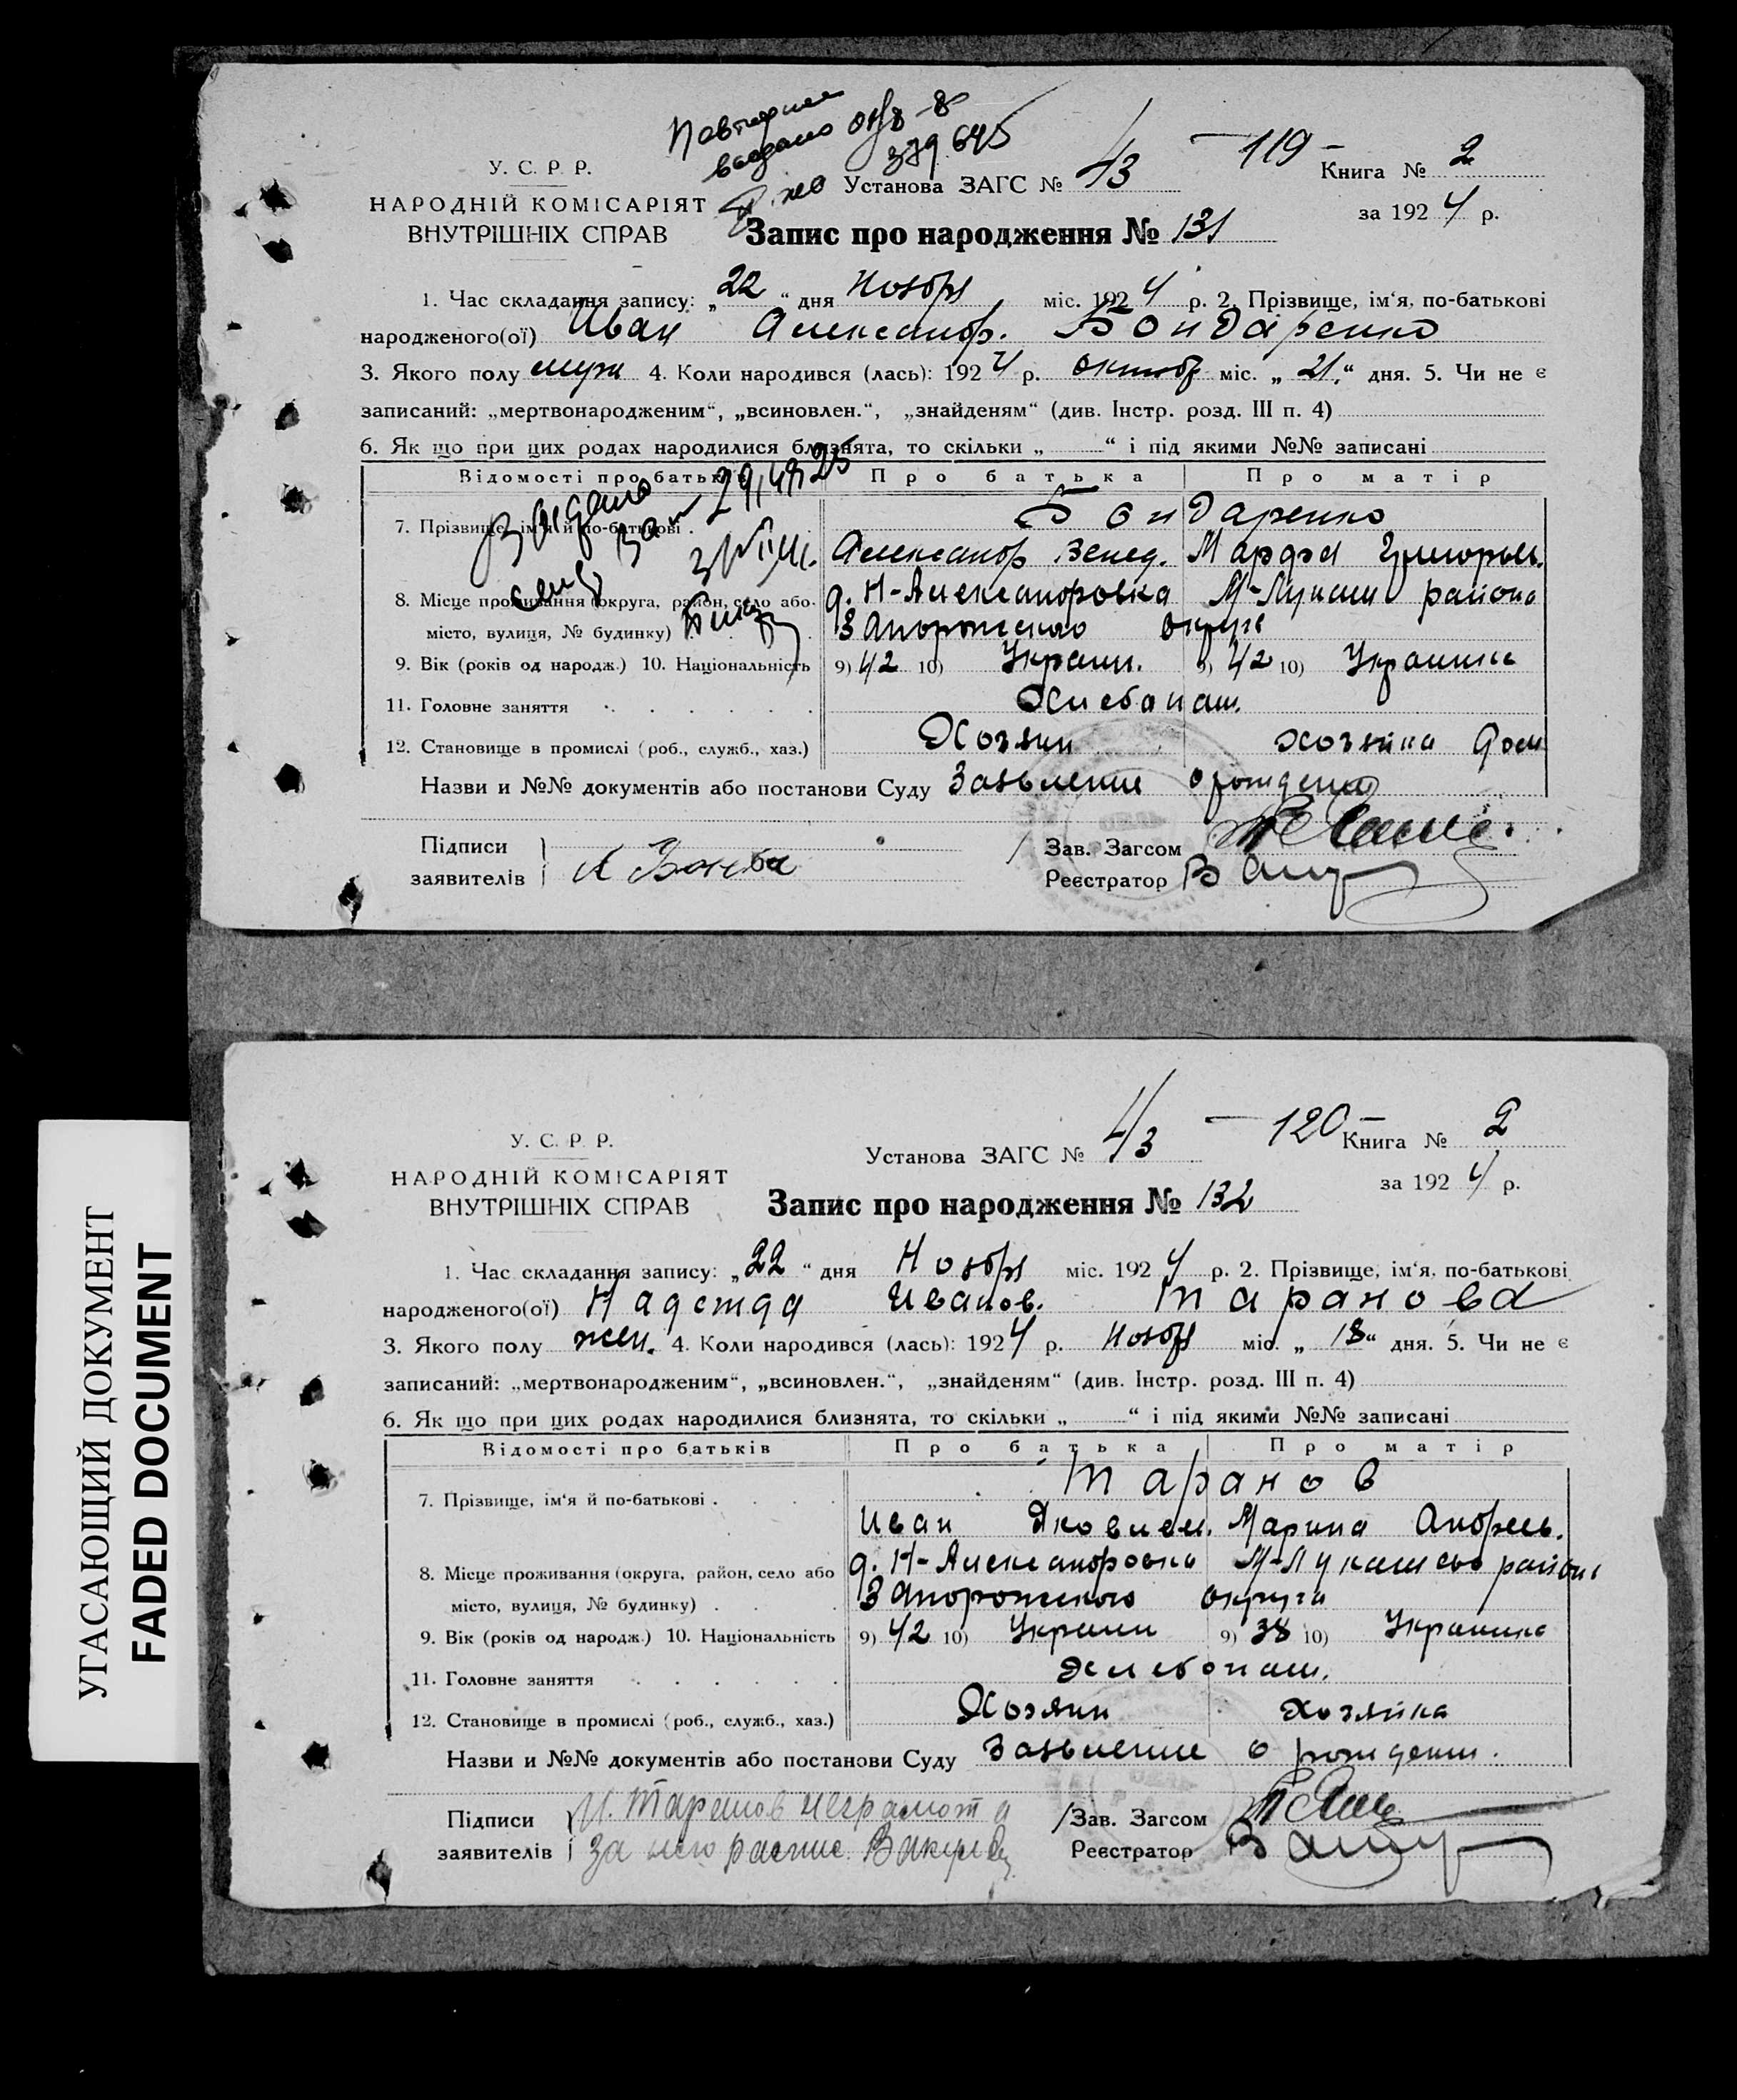 Повторное
выдано
379645
У. С. Р. Р.
НАРОДНІЙ КОМІСАРІЯТ
ВНУТРІШНІХ СПРАВ
Установа ЗАГС № 4/3 — 119 — Книга № 2
за 1924 р.
Запис про народження № 131
1. Час складання запису: „22“ дня Ноября міс. 1924 р. 2. Прізвище, ім‘я, по-батькові
народженого(ої) Иван Александр. Бондаренко
3. Якого полу муж 4. Коли народився (лась): 1924 р. октябр міс. „21“ дня. 5. Чи не є
записаний: „мертвонародженим“, „всиновлен.“, „знайденям“ (див. Інстр. розд. III п. 4)
6. Як що при цих родах народилися близнята, то скільки „ “ і під якими №№ записані
Відомості про батьків Про батька Про матір
Видано
7. Прізвище, ім‘я й по-батькові . Бондаренко
Александр Марфа Григорьев.
8. Місце проживання (округа, район, село або д. Н-Александровка М-Лукаш района
місто, вулиця, № будинку) Запорожского округа
9. Вік (років од народж.) 10. Національність 9) 42 10) Украин. 9) 42 10) Украинка
11. Головне заняття Хлебопаш.
12. Становище в промислі (роб., служб., хаз.) Хозяин хозяйка дом
Назви и №№ документів або постанови Суду Заявление о рождении
Підписи
заявителів
Зав. Загсом
Реєстратор
У. С. Р. Р.
НАРОДНІЙ КОМІСАРІЯТ
ВНУТРІШНІХ СПРАВ
Установа ЗАГС № 4/3 — 120 — Книга № 2
за 1924 р.
Запис про народження № 132
1. Час складання запису: „22“ дня Ноября міс. 1924 р. 2. Прізвище, ім‘я, по-батькові
народженого(ої) Надежда Иванов. Таранова
3. Якого полу жен. 4. Коли народився (лась): 1924 р. Ноября міс. „18“ дня. 5. Чи не є
записаний: „мертвонародженим“, „всиновлен.“, „знайденям“ (див. Інстр. розд. III п. 4)
6. Як що при цих родах народилися близнята, то скільки „ “ і під якими №№ записані
Відомості про батьків Про батька Про матір
7. Прізвище, ім‘я й по-батькові . Таранов
Иван Яковлев. Марина Андреев.
8. Місце проживання (округа, район, село або д. Н-Александровка М-Лукашево района
місто, вулиця, № будинку) . Запорожского округа
9. Вік (років од народж.) 10. Національність 9) 42 10) Украин 9) 38 10) Украинка
11. Головне заняття хлебопаш.
12. Становище в промислі (роб., служб., хаз.) Хозяин хозяйка
Назви и №№ документів або постанови Суду Заявление о рождении.
Підписи И. Таранов неграмотн
заявителів за него распис.
Зав. Загсом
Реєстратор
УГАСАЮЩИЙ ДОКУМЕНТ
FADED DOCUMENT